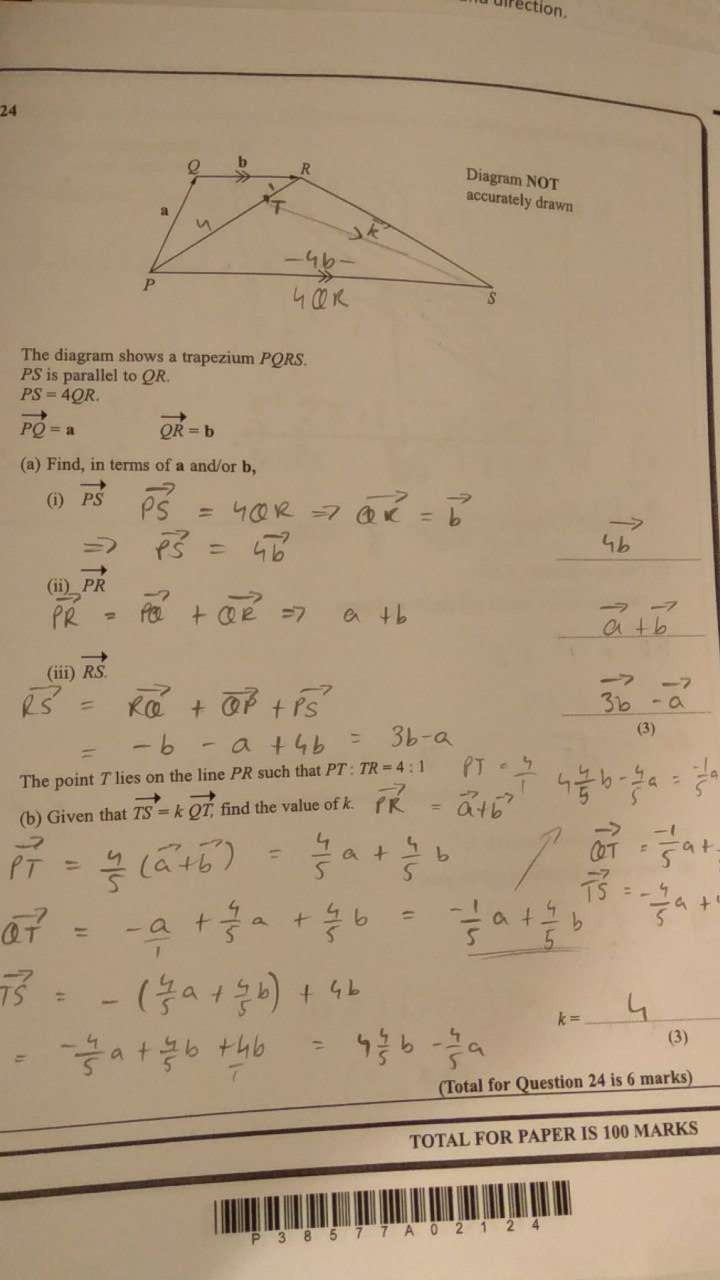 direction.
24
Q b R
Diagram NOT
accurately drawn
a 4 T k
-4b-
P 4QR S
The diagram shows a trapezium PQRS.
PS is parallel to QR.
PS = 4QR.
PQ = a QR = b
(a) Find, in terms of a and/or b,
(i) PS PS = 4QR => QR = b
=> PS = 4b 4b
(ii) PR
PR = PQ + QR => a + b a + b
(iii) RS.
RS = RQ + QP + PS 3b - a
(3)
= -b - a + 4b = 3b-a
The point T lies on the line PR such that PT : TR = 4 : 1 PT = 4/1 4 4/5 b - 4/5 a = -1/5 a
(b) Given that TS = k QT, find the value of k. PR = a+b
PT = 4/5 (a+b) = 4/5 a + 4/5 b QT = -1/5 a +
TS = -4/5 a +
QT = -a/1 + 4/5 a + 4/5 b = -1/5 a + 4/5 b
TS = - (4/5 a + 4/5 b) + 4b
k = 4
(3)
= -4/5 a + 4/5 b + 4b/1 = 4 4/5 b - 4/5 a
(Total for Question 24 is 6 marks)
TOTAL FOR PAPER IS 100 MARKS
P 3 8 5 7 7 A 0 2 1 2 4